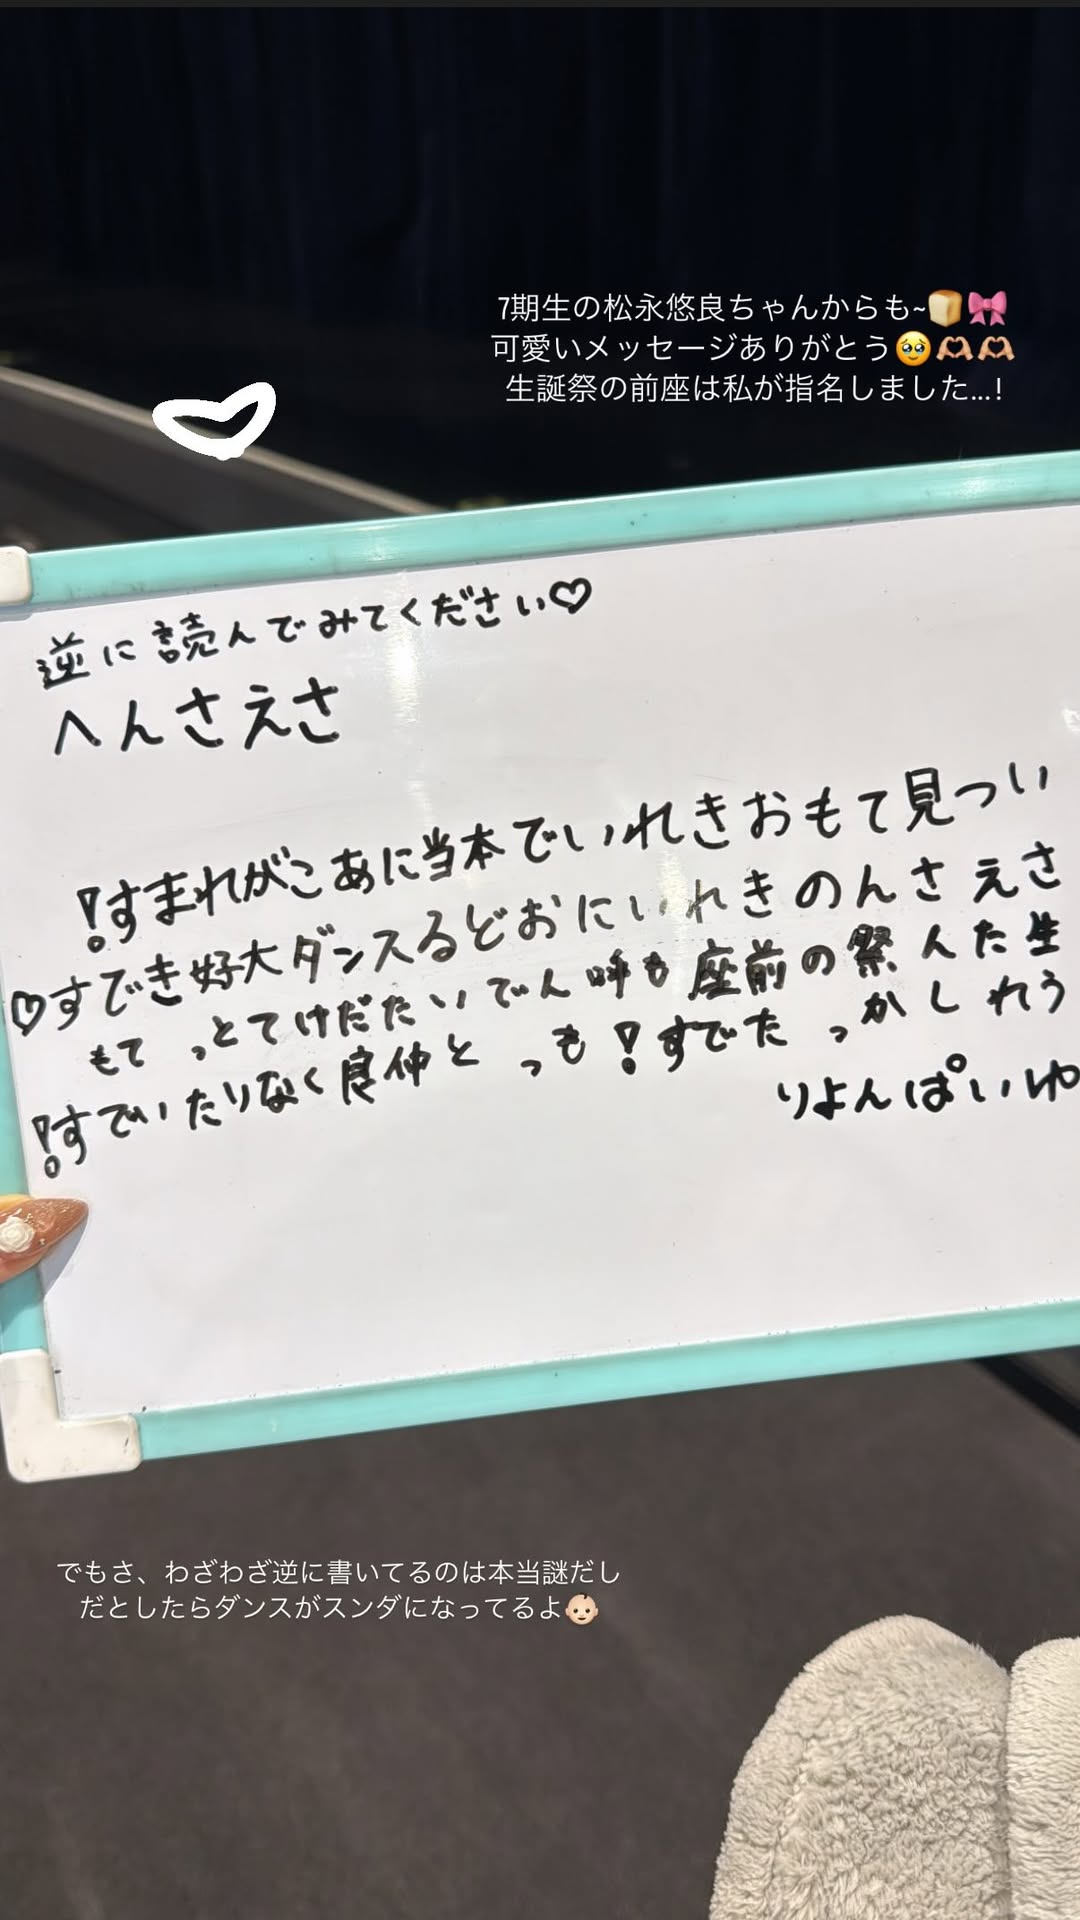 7期生の松永悠良ちゃんからも~🍞🎀
可愛いメッセージありがとう🥹🫶🏽🫶🏽
生誕祭の前座は私が指名しました...!
逆に読んでみてください♡
へんさえさ
!すまれがこあに当本でいれきおもて見つい
♡すできき好大ダンスるどおにいれきのんさえさ
もてっとてけだたいでん呼も座前の祭んた生
!すでいたりなく良仲とっも!すでたっかしれう
りよんぱいゆ
でもさ、わざわざ逆に書いてるのは本当謎だし
だとしたらダンスがスンダになってるよ👶🏻